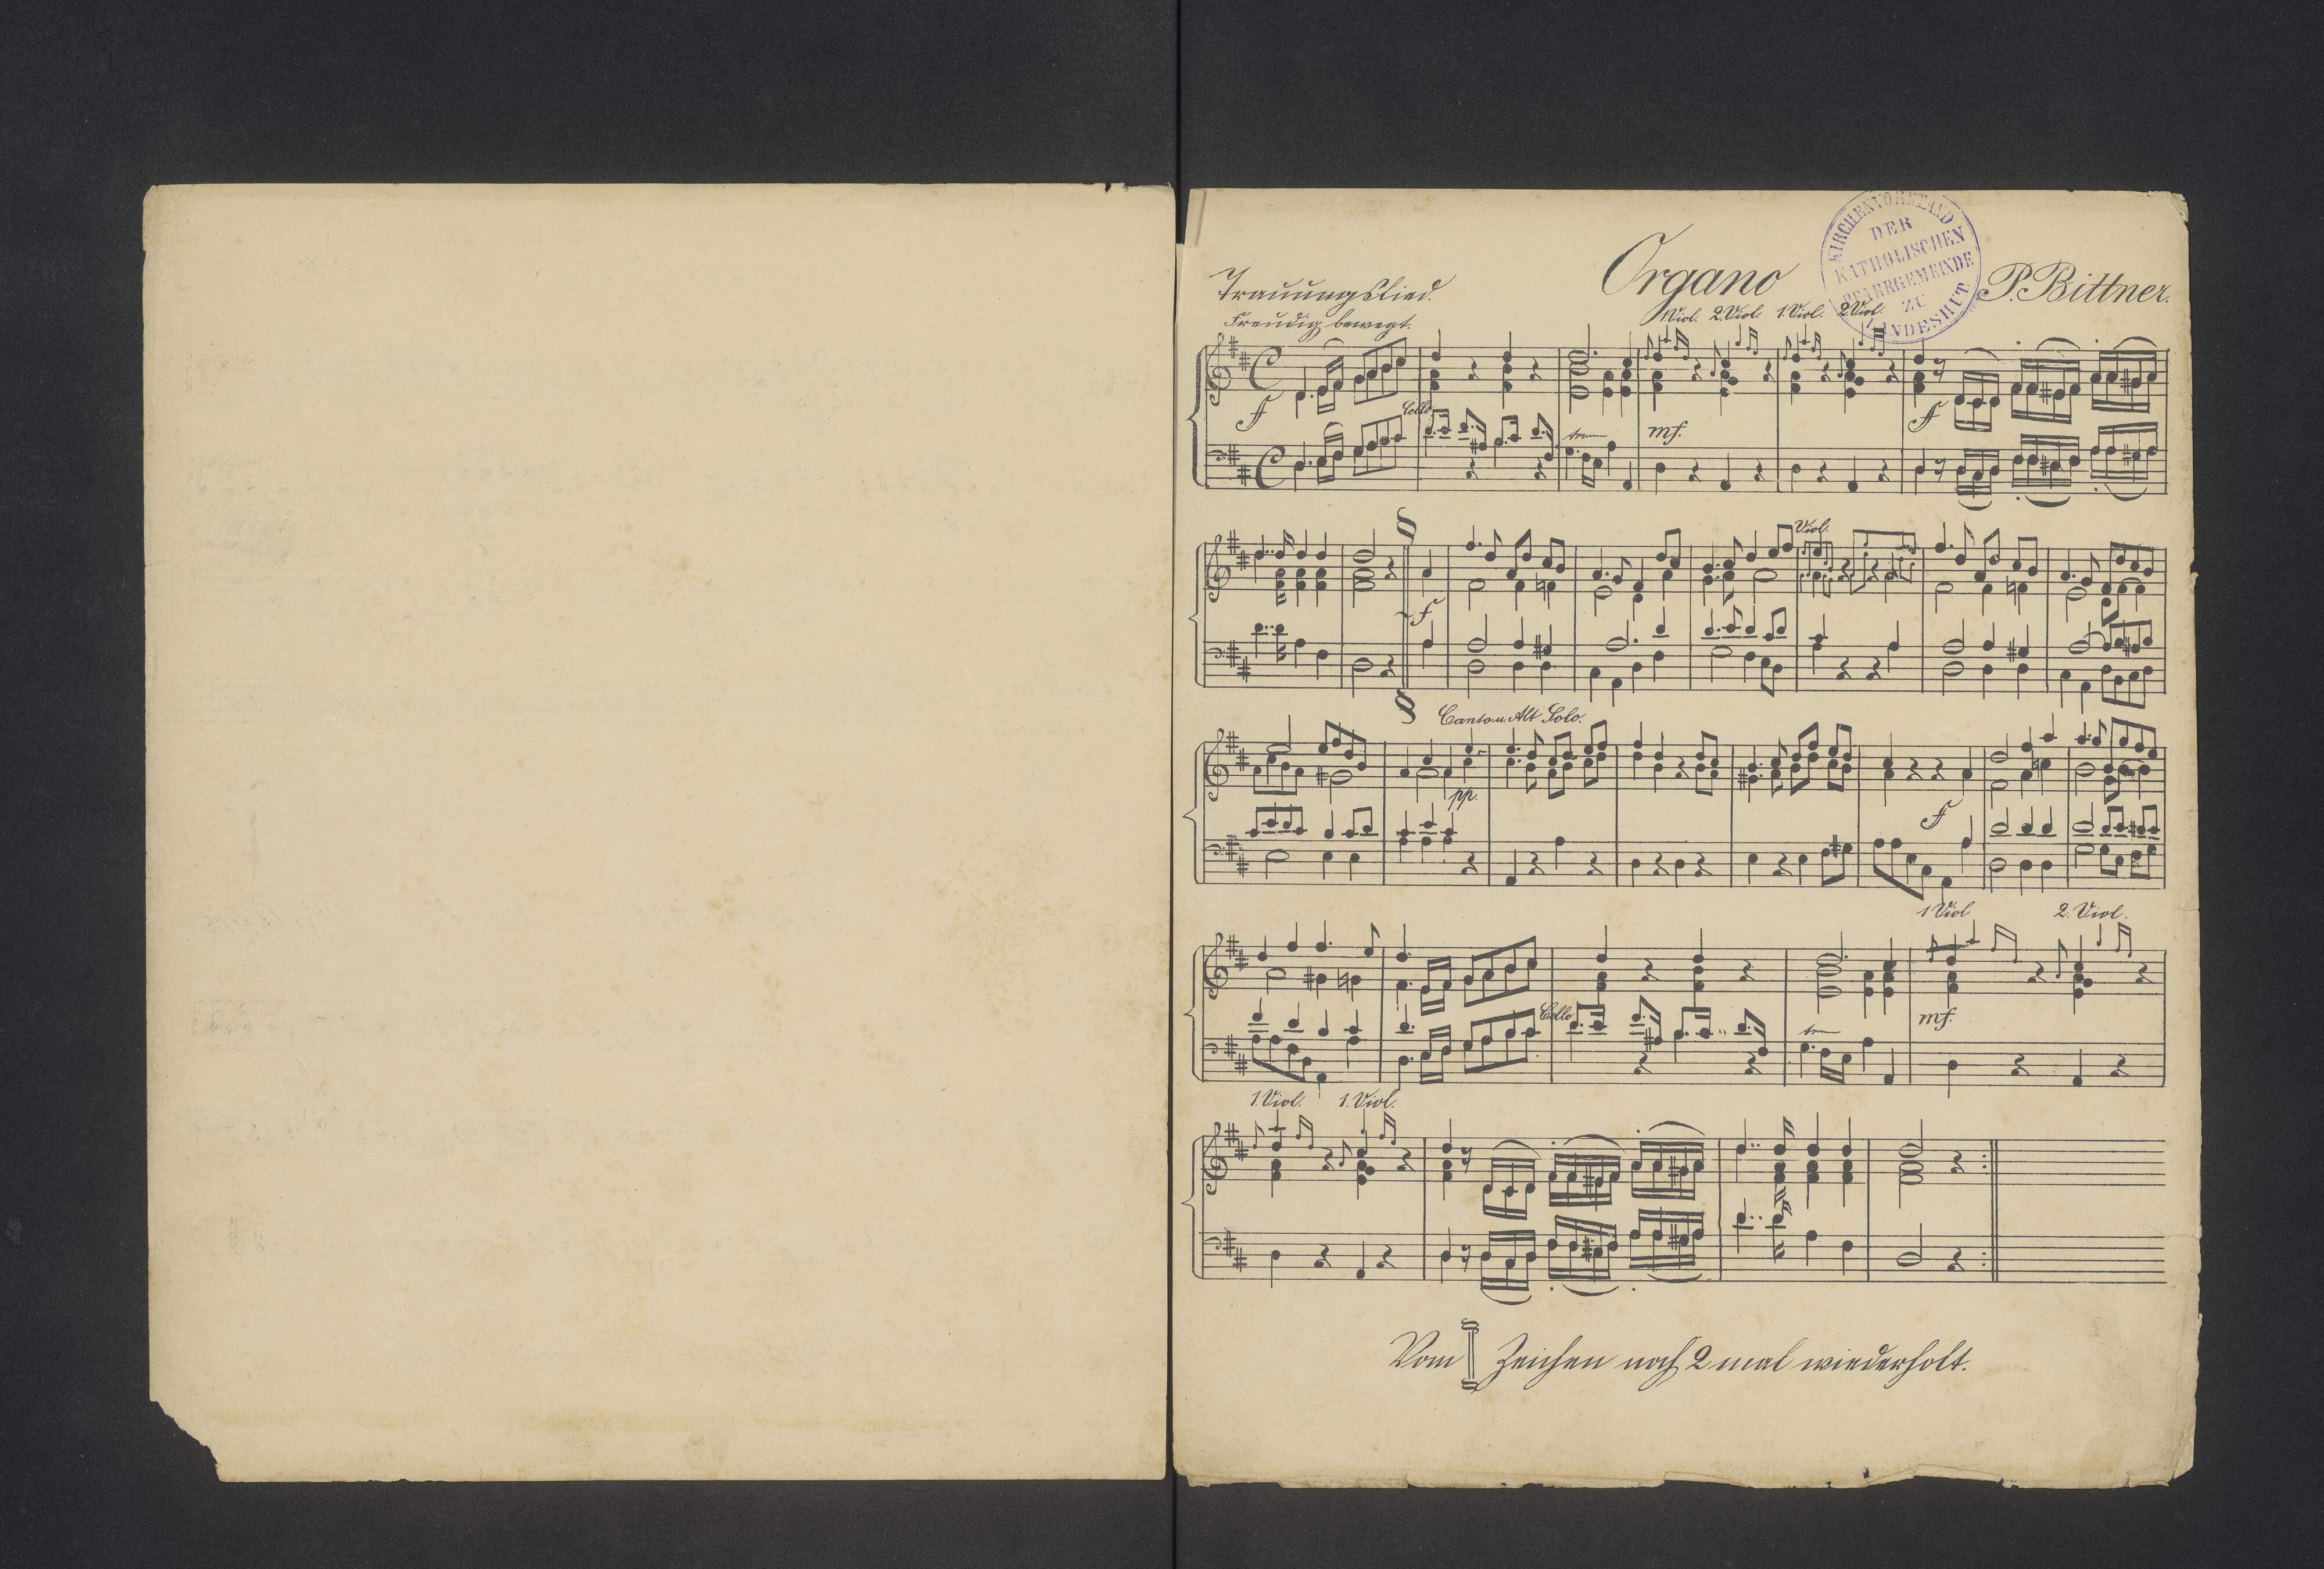 KIRCHENVORSTAND
DER
KATHOLISCHEN
PFARRGEMEINDE
ZU
LANDESHUT
Organo
P. Bittner.
Trauungslied.
Freudig bewegt.
1Viol. 2.Viol. 1.Viol. 2.Viol.
f
Cello
mf.
f
Viol.
f
Canto u. Alt Solo.
pp.
f
1 Viol 2. Viol.
Cello
mf.
1.Viol. 1.Viol.
Vom Zeichen noch 2 mal wiederholt.